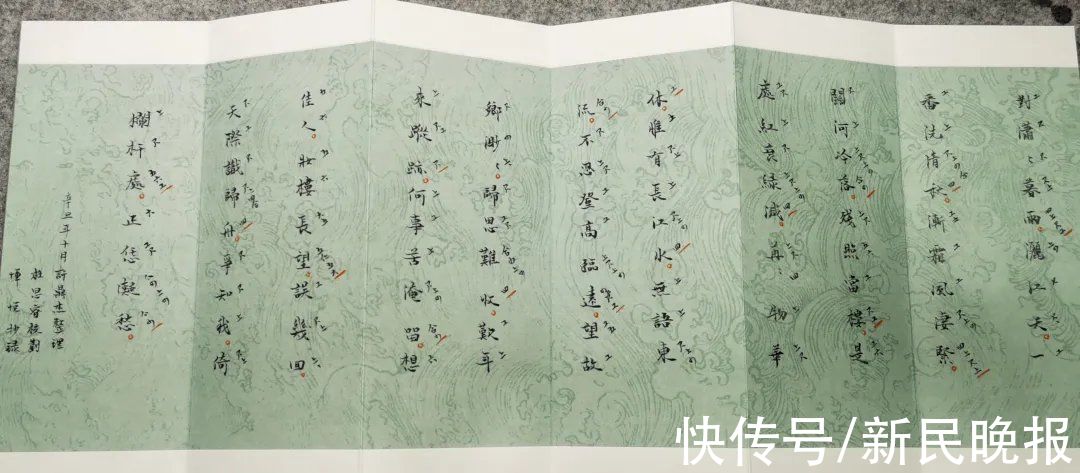 對瀟〻暮雨。灑江天一
番洗清秋。漸霜風凄緊。
關河冷落。残照當樓。是
處紅衰綠減。苒〻物華
休。惟有長江水。無語東
流。不思登高臨遠。望故
鄉渺〻。歸思難收。歎年
來蹤跡。何事苦淹留。想
佳人。妝樓長望。誤幾回。
天際識歸舟。爭知我。倚
欄杆處。正恁凝愁。
辛丑年十月許 杰整理
思睿校對
恒抄錄
快传号/新民晚报